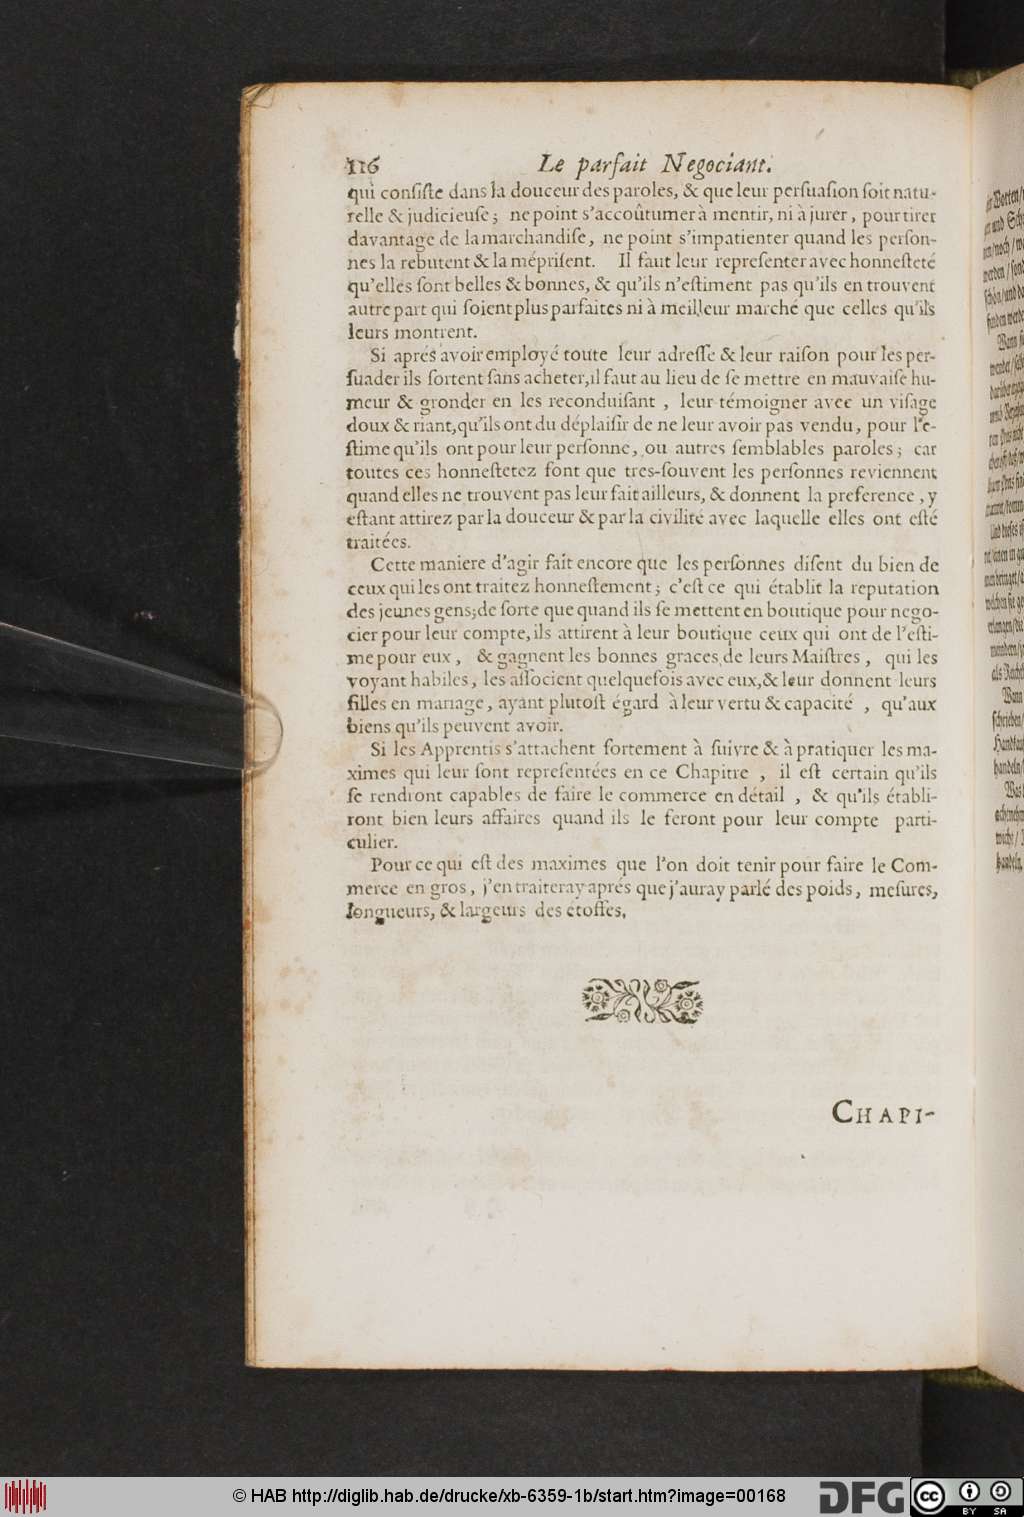 116 Le parfait Negociant.
qui conſiſte dans la douceur des paroles, & que leur perſuaſion ſoit natu-
relle & judicieuſe; ne point s'accoûtumer à mentir, ni à jurer, pour tirer
davantage de la marchandiſe, ne point s'impatienter quand les perſon-
nes la rebutent & la mépriſent. Il faut leur repreſenter avec honneſteté
qu'elles ſont belles & bonnes, & qu'ils n'eſtiment pas qu'ils en trouvent
autre part qui ſoient plus parfaites ni à meilleur marché que celles qu'ils
leurs montrent.
Si aprés avoir employé toute leur adreſſe & leur raiſon pour les per-
ſuader ils ſortent ſans acheter, il faut au lieu de ſe mettre en mauvaiſe hu-
meur & gronder en les reconduiſant, leur témoigner avec un viſage
doux & riant, qu'ils ont du déplaiſir de ne leur avoir pas vendu, pour l'e-
ſtime qu'ils ont pour leur perſonne, ou autres ſemblables paroles; car
toutes ces honneſtetez ſont que tres-ſouvent les perſonnes reviennent
quand elles ne trouvent pas leur fait ailleurs, & donnent la preference, y
eſtant attirez par la douceur & par la civilité avec laquelle elles ont eſté
traitées.
Cette maniere d'agir fait encore que les perſonnes diſent du bien de
ceux qui les ont traitez honneſtement; c'eſt ce qui établit la reputation
des jeunes gens; de ſorte que quand ils ſe mettent en boutique pour nego-
cier pour leur compte, ils attirent à leur boutique ceux qui ont de l'eſti-
me pour eux, & gagnent les bonnes graces de leurs Maiſtres, qui les
voyant habiles, les aſſocient quelquefois avec eux, & leur donnent leurs
filles en mariage, ayant plutoſt égard à leur vertu & capacité, qu'aux
biens qu'ils peuvent avoir.
Si les Apprentis s'attachent fortement à ſuivre & à pratiquer les ma-
ximes qui leur ſont repreſentées en ce Chapitre, il eſt certain qu'ils
ſe rendront capables de faire le commerce en détail, & qu'ils établi-
ront bien leurs affaires quand ils le feront pour leur compte parti-
culier.
Pour ce qui eſt des maximes que l'on doit tenir pour faire le Com-
merce en gros, j'en traiteray aprés que j'auray parlé des poids, meſures,
longueurs, & largeurs des étoffes.
CHAPI-
© HAB http://diglib.hab.de/drucke/xb-6359-1b/start.htm?image=00168
DFG
cc
BY SA